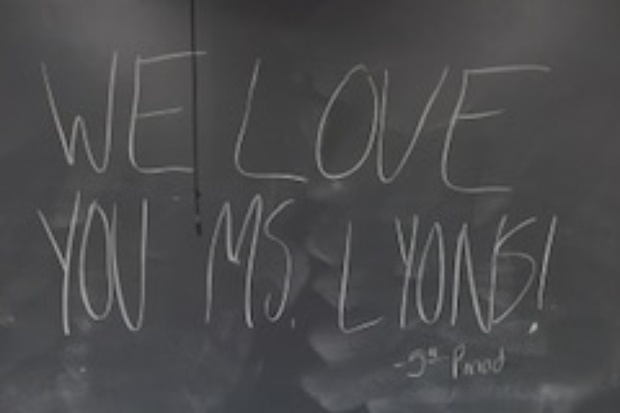 WE LOVE
YOU MS. LYONS!
Period